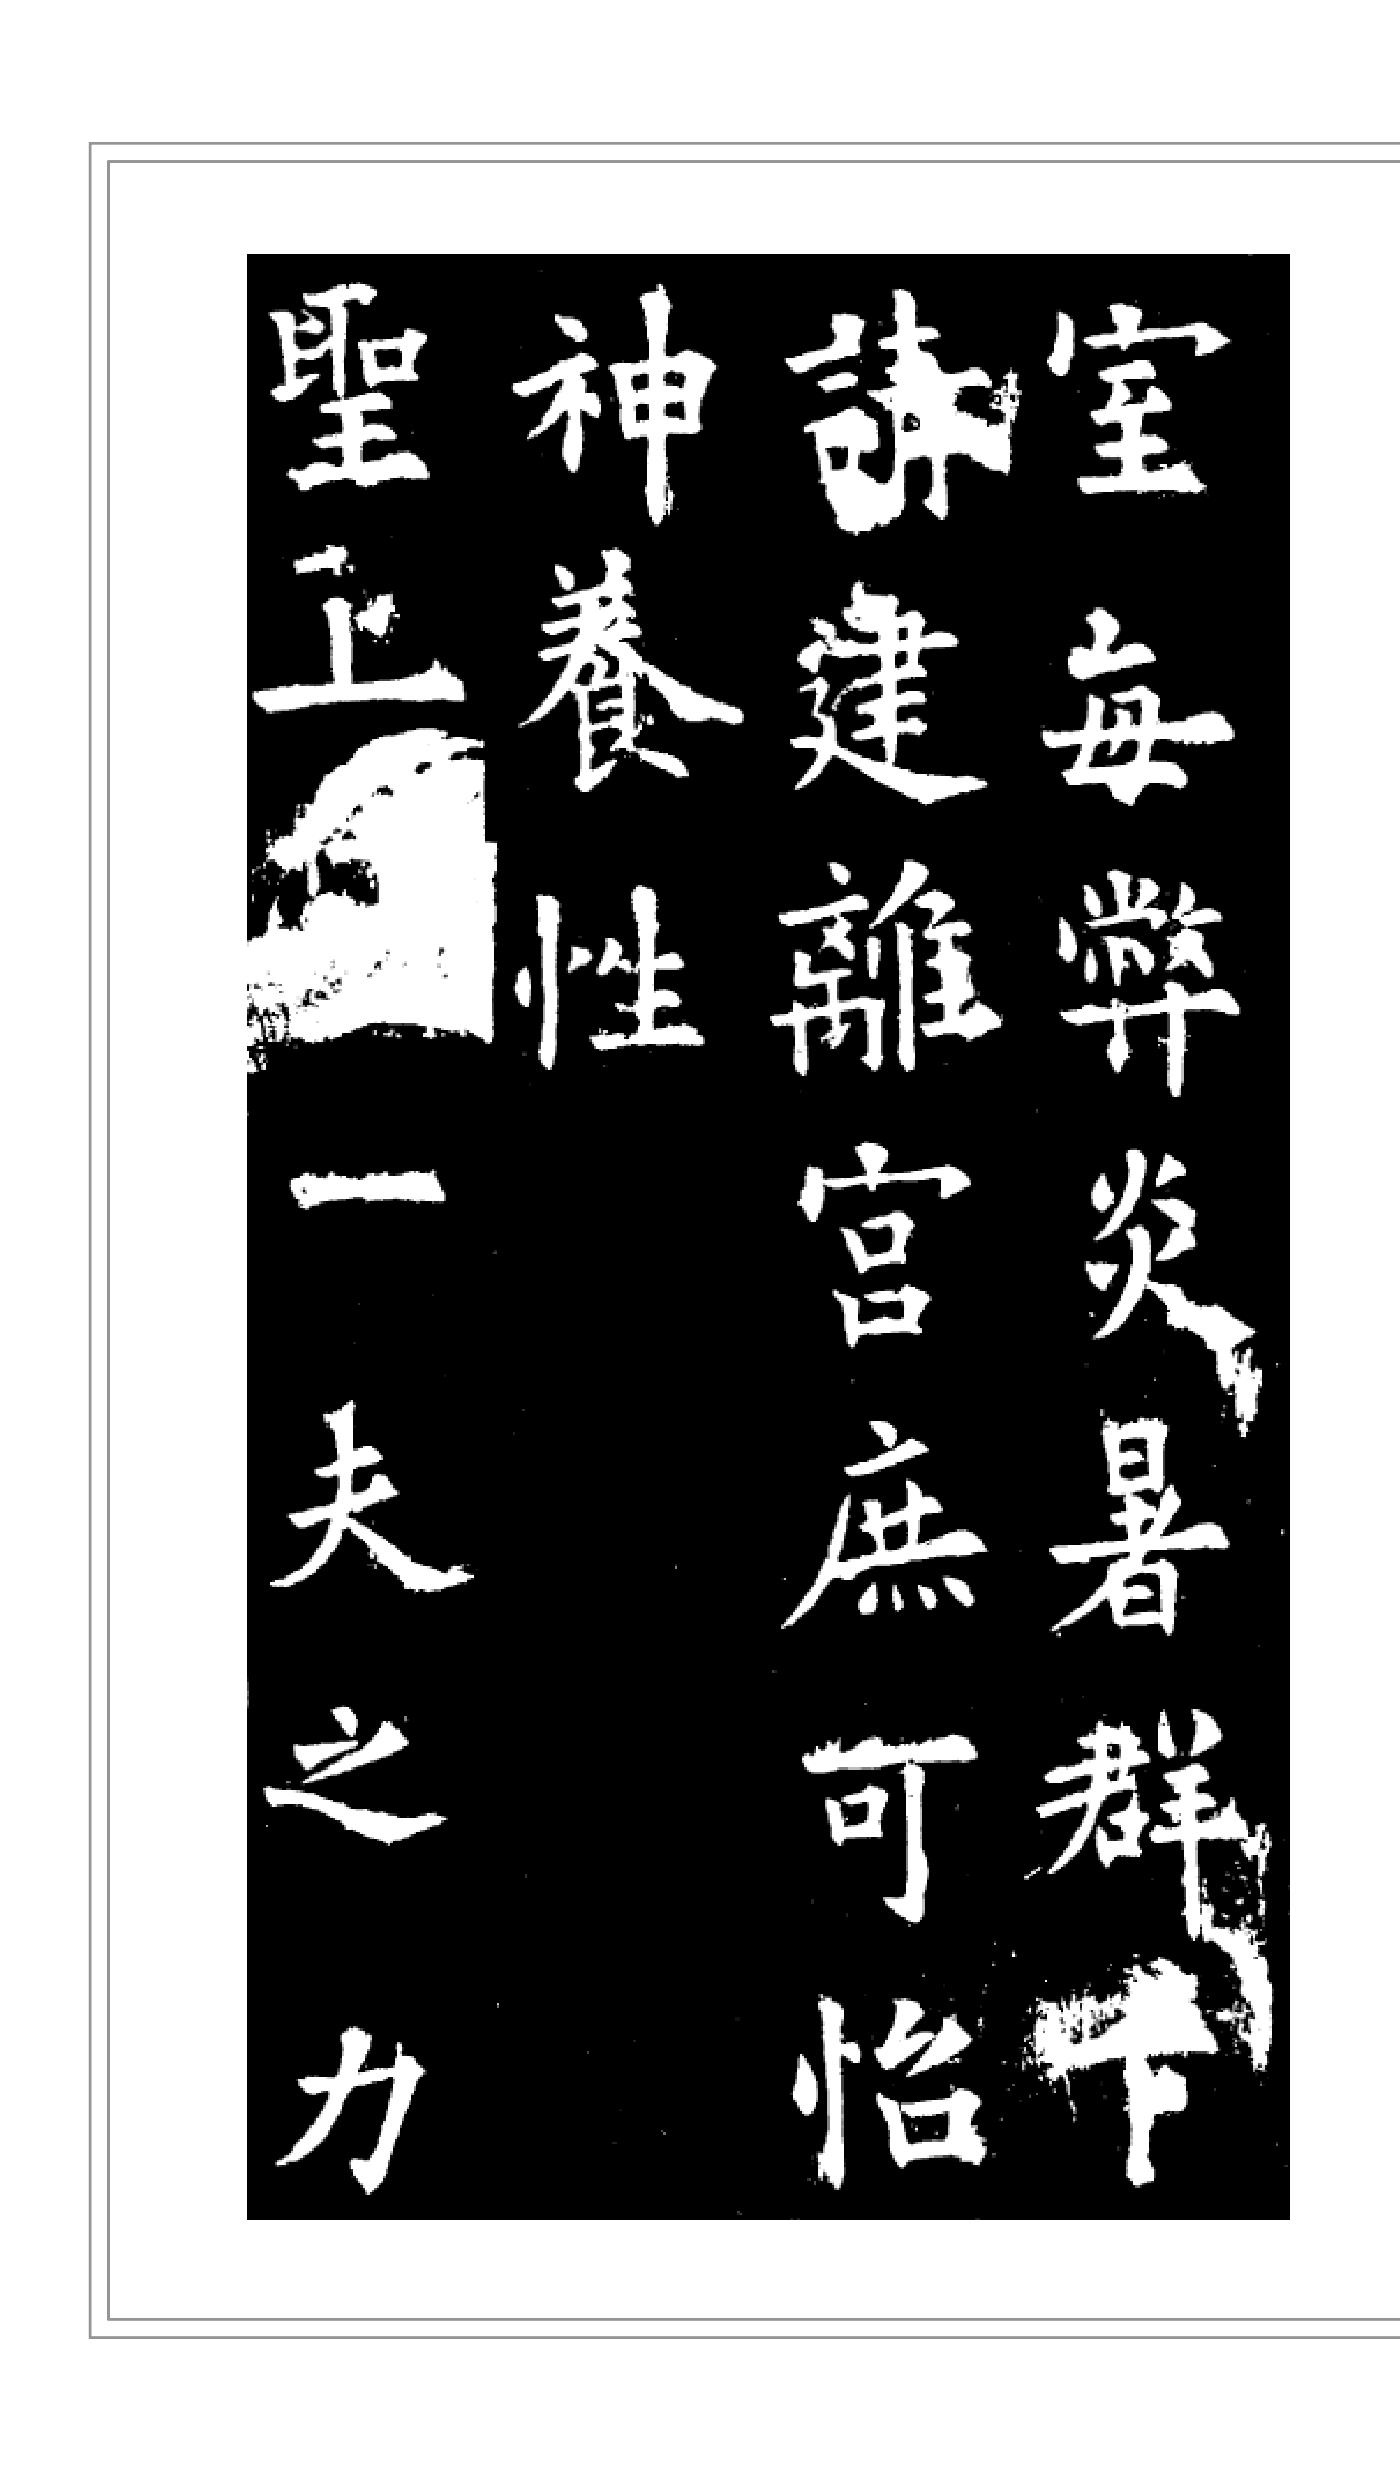 室每弊炎暑群下
請建離宮庶可怡
神養性
聖上一夫之力